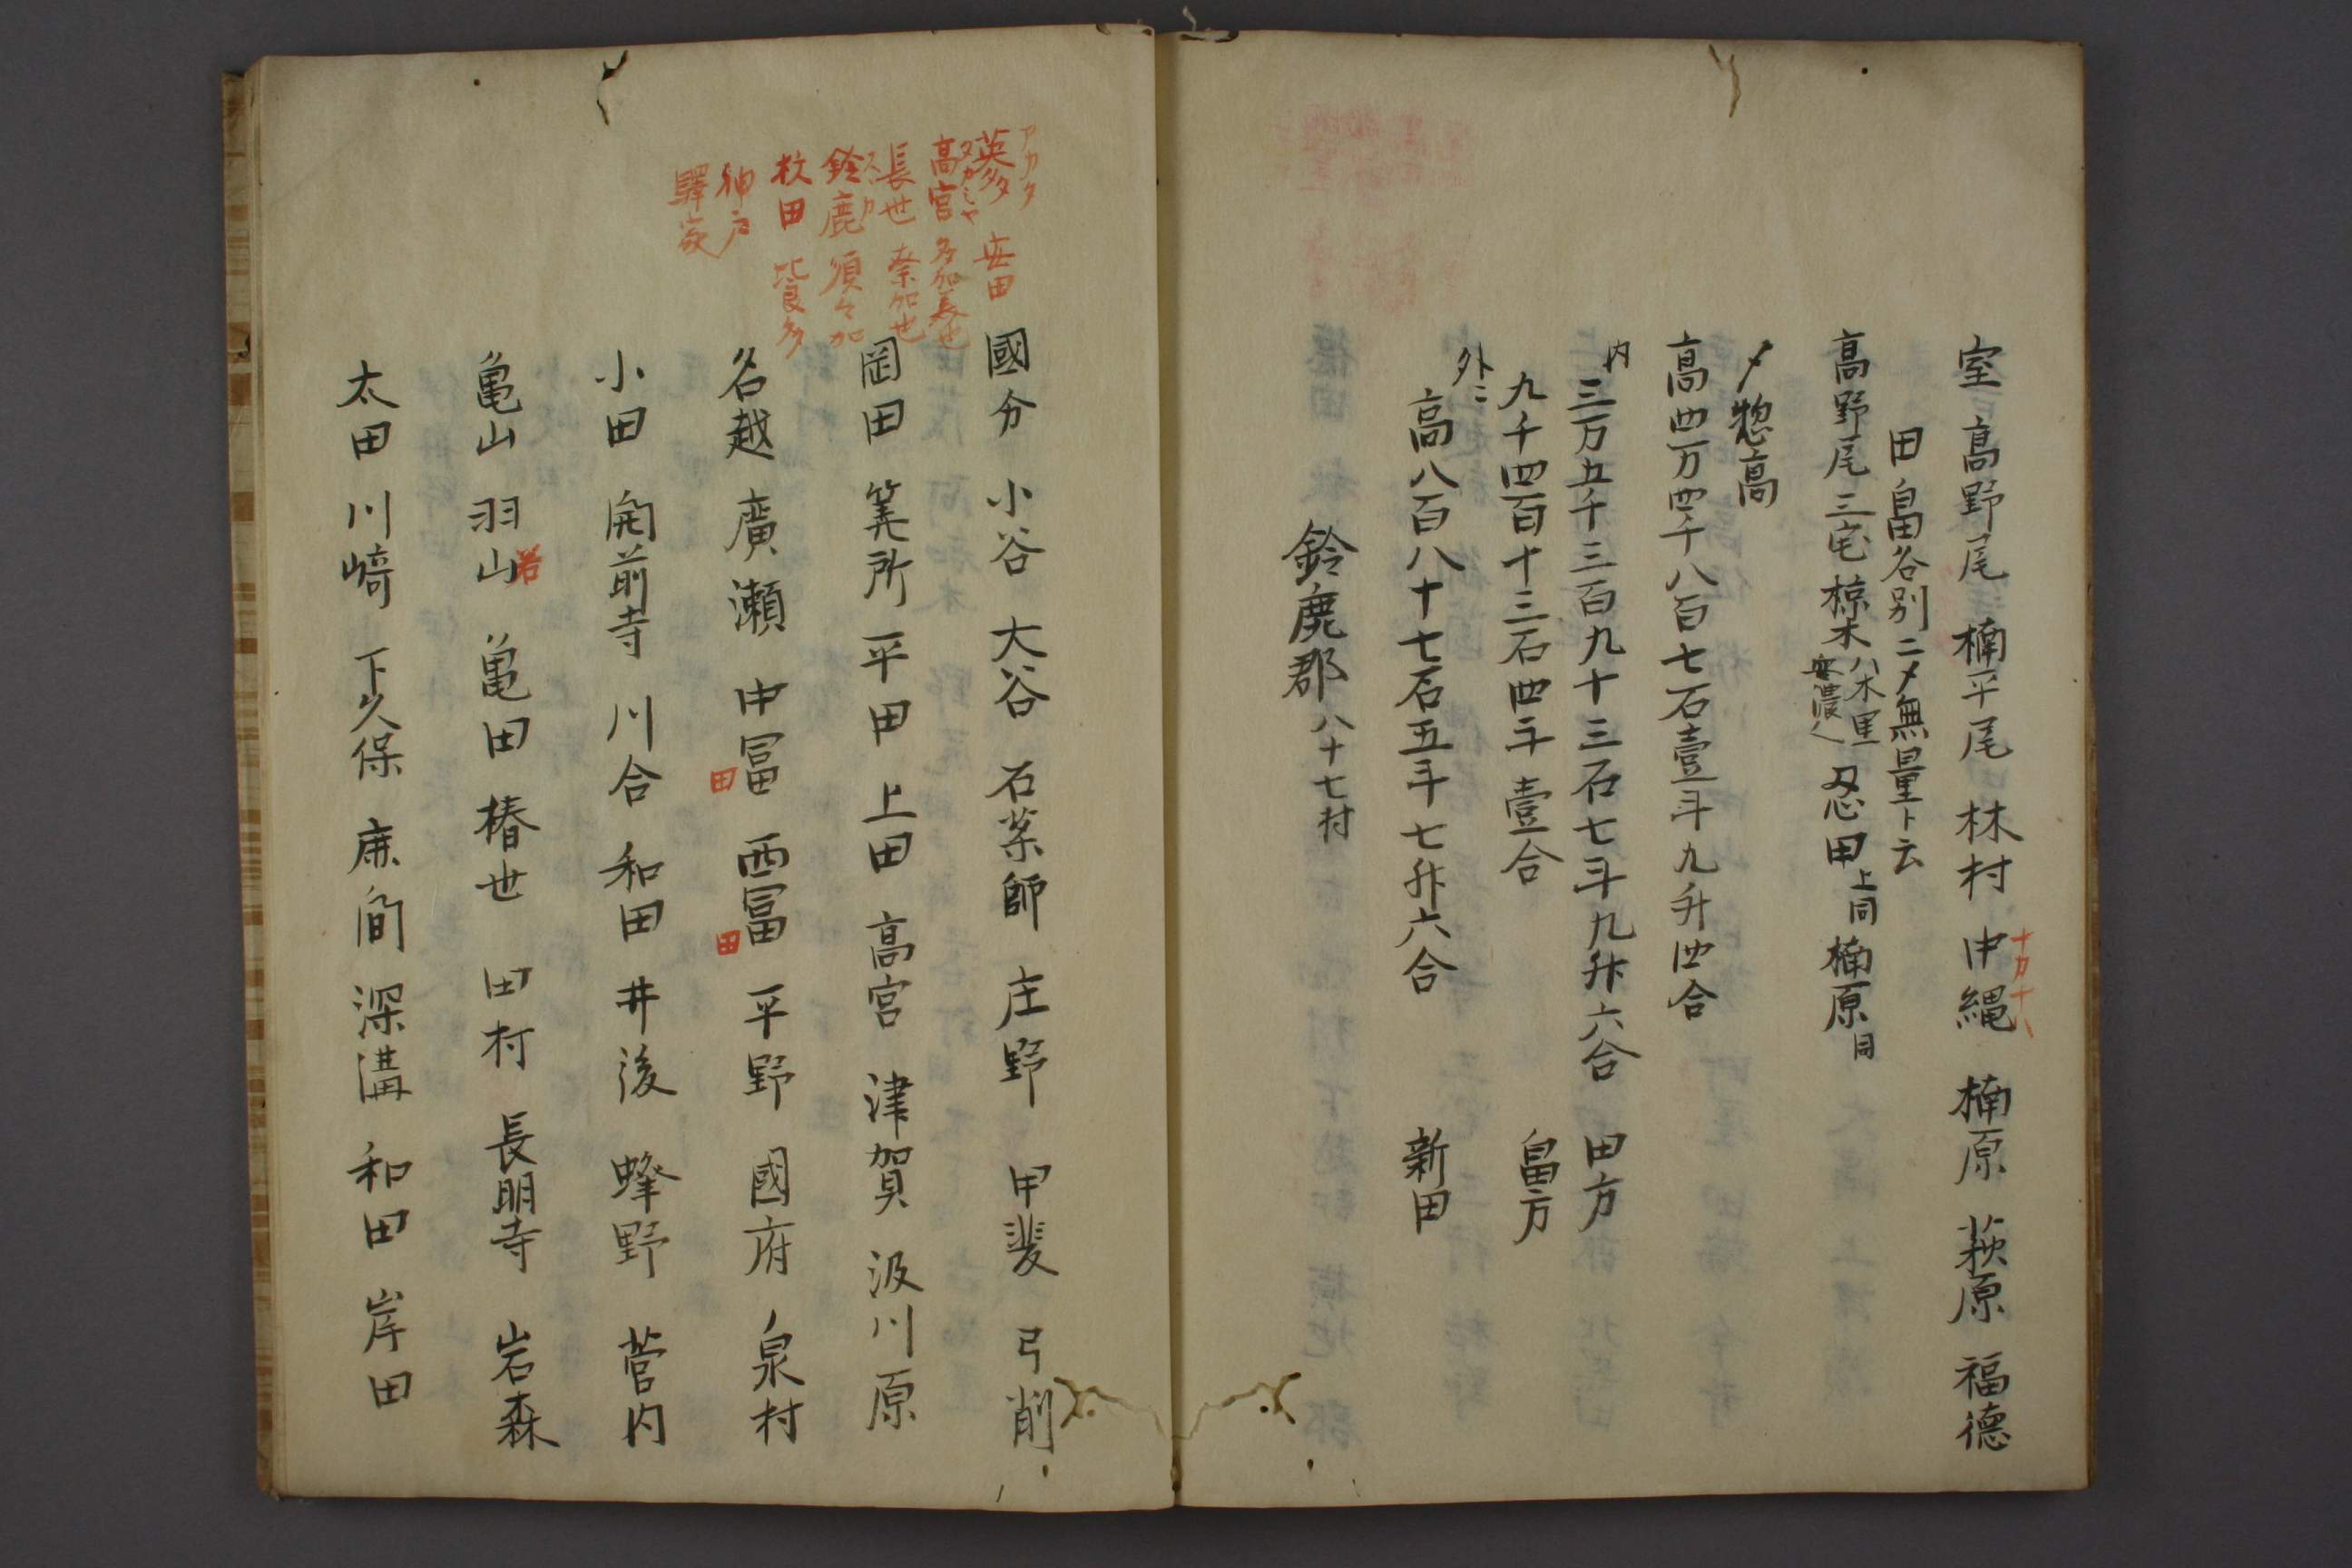 室 高野尾 楠平尾 林村 中縄 楠原 萩原 福徳
田畠各別ニ〆無量ト云
高野尾 三宅 椋本 八木里 安濃へ 忍田 上同 楠原 同
〆惣高
高四万四千八百七石壹斗九升四合
内三万五千三百九十三石七斗九升六合 田方
九千四百十三石四斗壹合 畠方
外ニ
高八百八十七石五斗七升六合 新田
鈴鹿郡 八十七村
アカタ
英多 安田
タカミヤ
高宮 多加美也
長世 奈加世
スヽカ
鈴鹿 須々加
枚田 比良多
神戸
驛家
國分 小谷 大谷 石薬師 庄野 甲斐 弓削
岡田 箕所 平田 上田 高宮 津賀 汲川原
名越 廣瀬 中冨田 西冨田 平野 國府 泉村
小田 開前寺 川合 和田 井後 蜂野 菅内
亀山 羽山 若 亀田 椿世 田村 長明寺 岩森
太田 川崎 下久保 麻間 深溝 和田 岸田